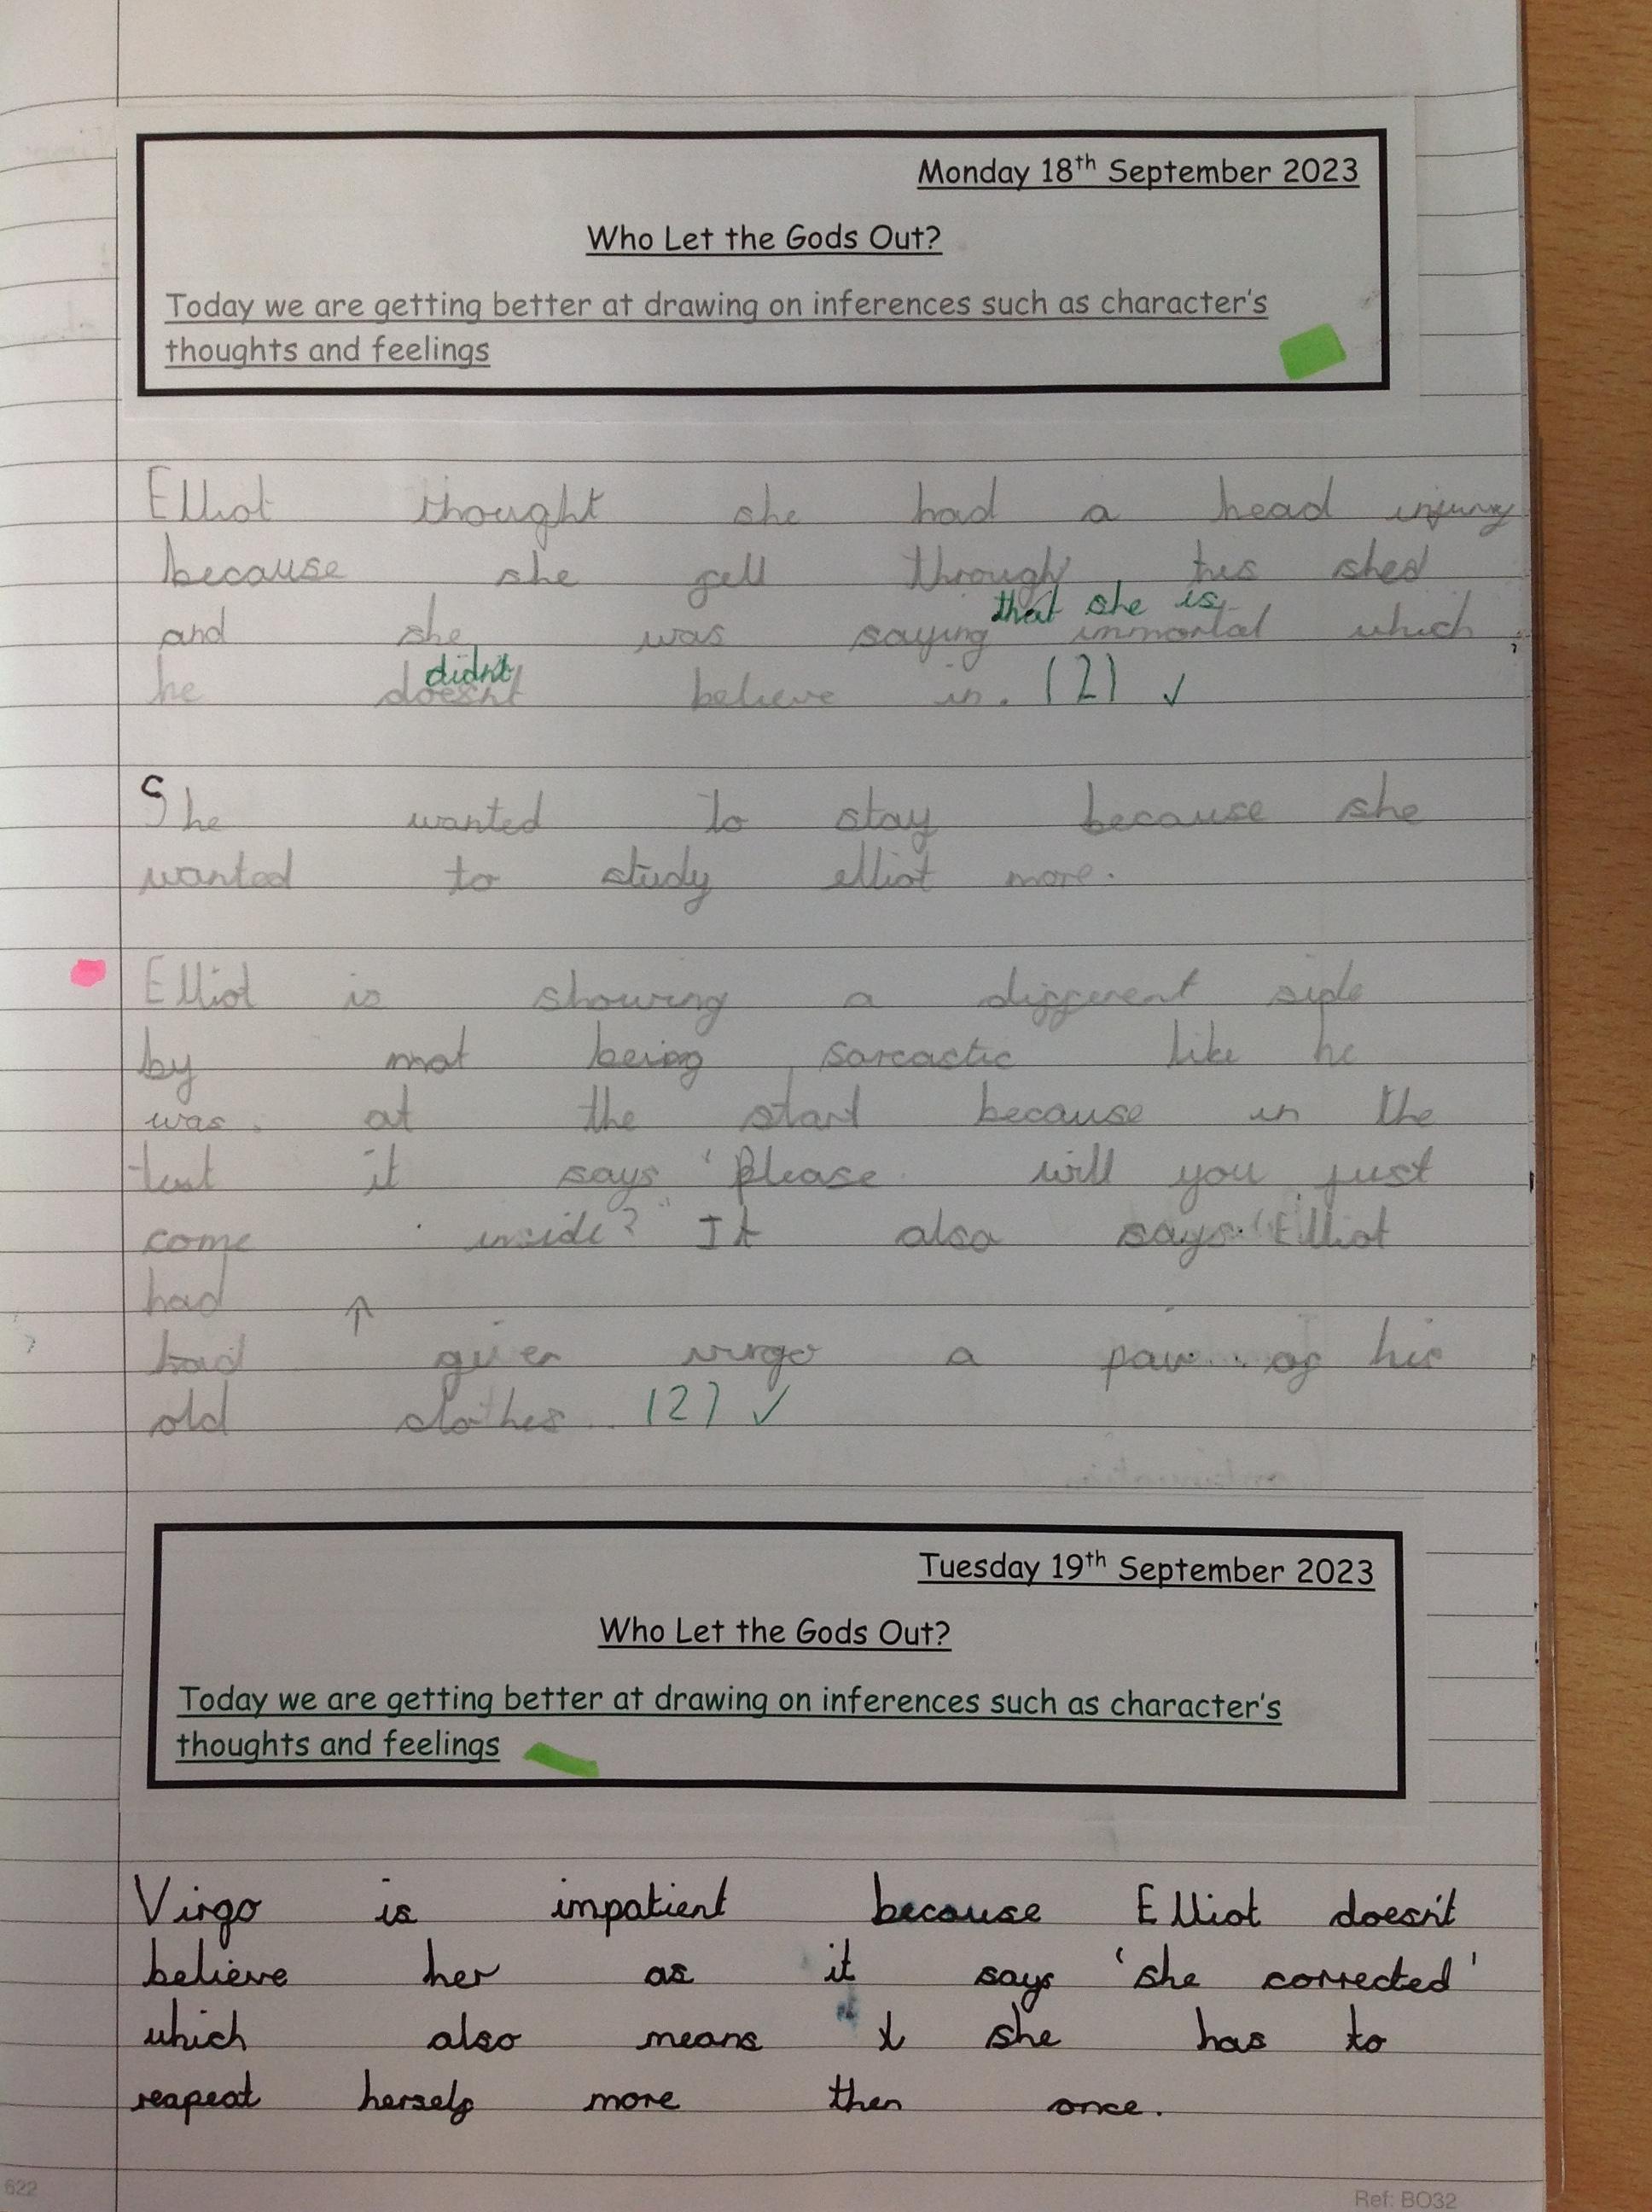 Monday 18th September 2023
Who Let the Gods Out?
Today we are getting better at drawing on inferences such as character's
thoughts and feelings
Elliot thought she had a head injury
because she fell through his shed
that she is
and she was saying immortal which
didn't
he doesn't believe in. (2) ✓
She wanted to stay because she
wanted to study elliot more.
Elliot is showing a different side
by not being sarcactic like he
was at the start because in the
text it says 'Please will you just
come inside?" It also says "Elliot
had ↑
had given virgo a pair of his
old clothes. (2) ✓
Tuesday 19th September 2023
Who Let the Gods Out?
Today we are getting better at drawing on inferences such as character's
thoughts and feelings
Virgo is impatient because Elliot doesn't
believe her as it says 'she corrected'
which also means she has to
reapeat herself more then once.
622
Ref: BO32